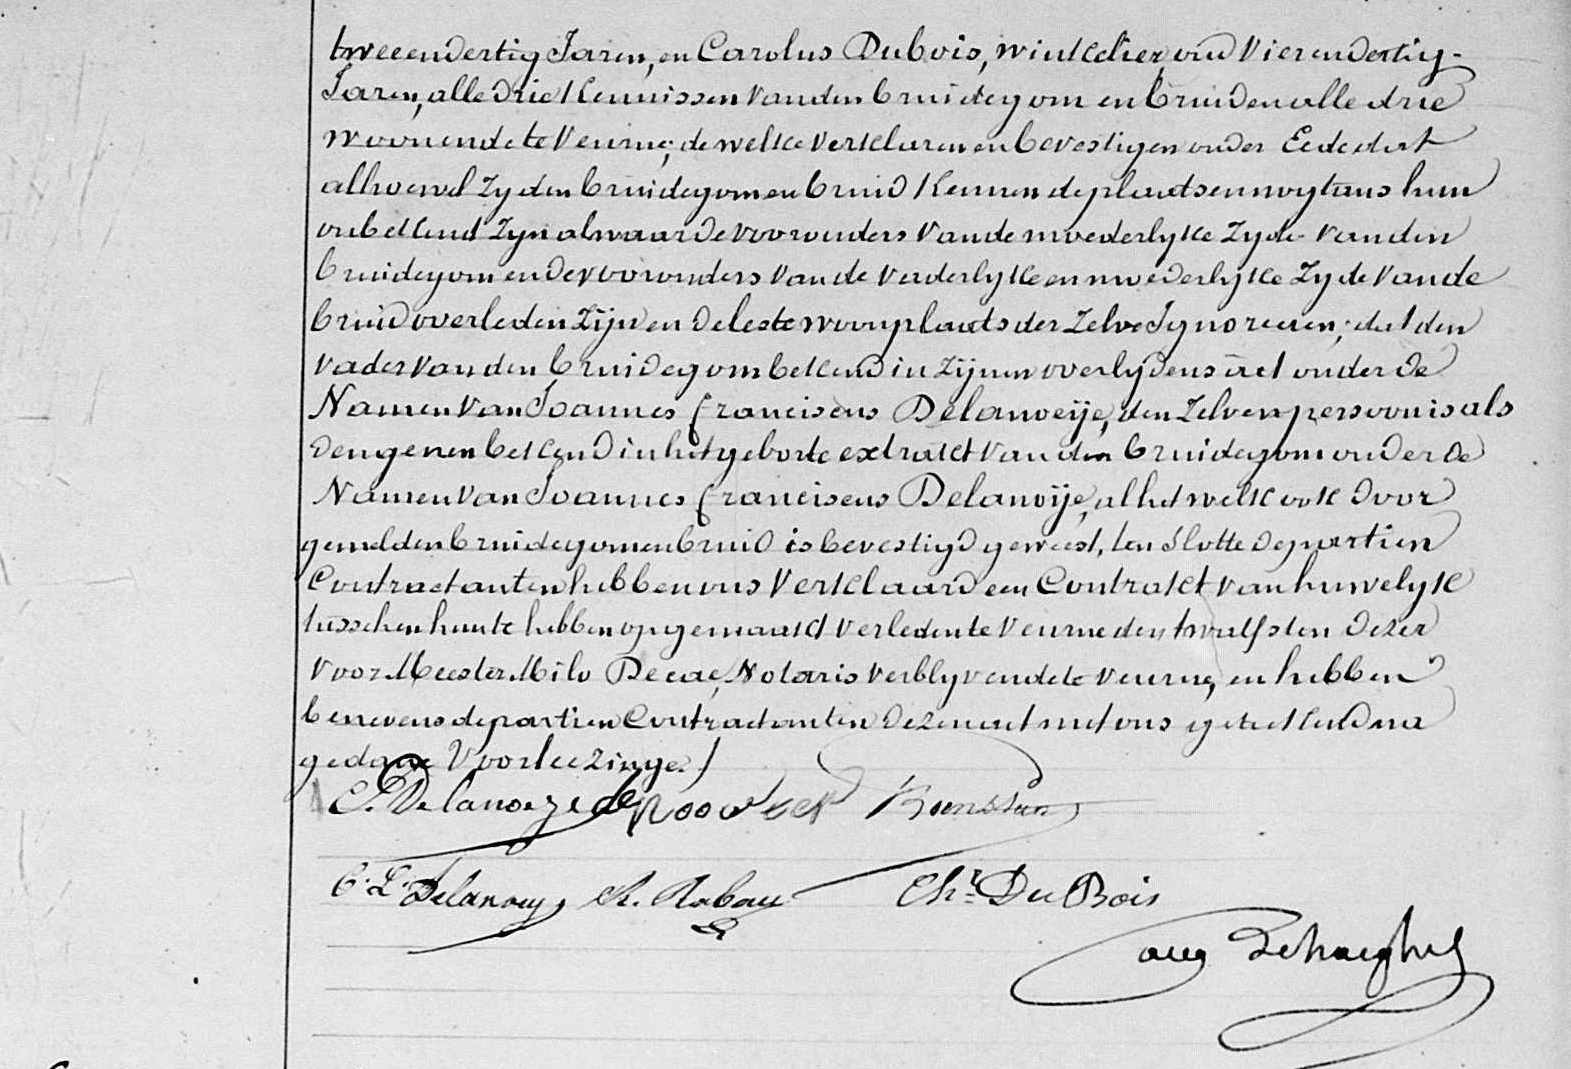 tweeendertig Jaren, en Carolus Dubois, winkelier oud Vierendertig
Jaren, alle drie Kennissen van den bruidegom en bruid en alle drie
woonende te Veurne; de welke verklaren en bevestigen onder Eede dat
alhoewel zy den bruidegom en bruid Kennen de plaatsen nogtans hun
onbekend zyn alwaar de voorouders van de moederlyke zyde van den
bruidegom en de voorouders van de vaderlyke en moederlyke zyde van de
bruid overleden zijn en de leste woonplaats der zelve Ignoreeren; dat den
vader van den bruidegom bekend in zijnen overlydens act onder de
Namen van Joannes franciscus Delanoeije, den zelven persoon is als
dengenen bekend in het geborte extrakt van den bruidegom onder de
Namen van Joannes franciscus Delanoije, al het welk ook door
gemelden bruidegom en bruid is bevestigd geweest, ten Slotte de partien
Contractanten hebben ons verklaard een Contrakt van huwelyk
tusschen hun te hebben opgemaakt verleden te Veurne den twaalfsten dezer
voor Meester Milo Decae, Notaris verblyvende te Veurne, en hebben
benevens de partien Contractanten dezen act met ons geteekend na
gedane Voorleezinge.
C. Delanoeije
C. L. Delanoeye Ch. Rabau Chr. DuBois
aug Dehaeghe